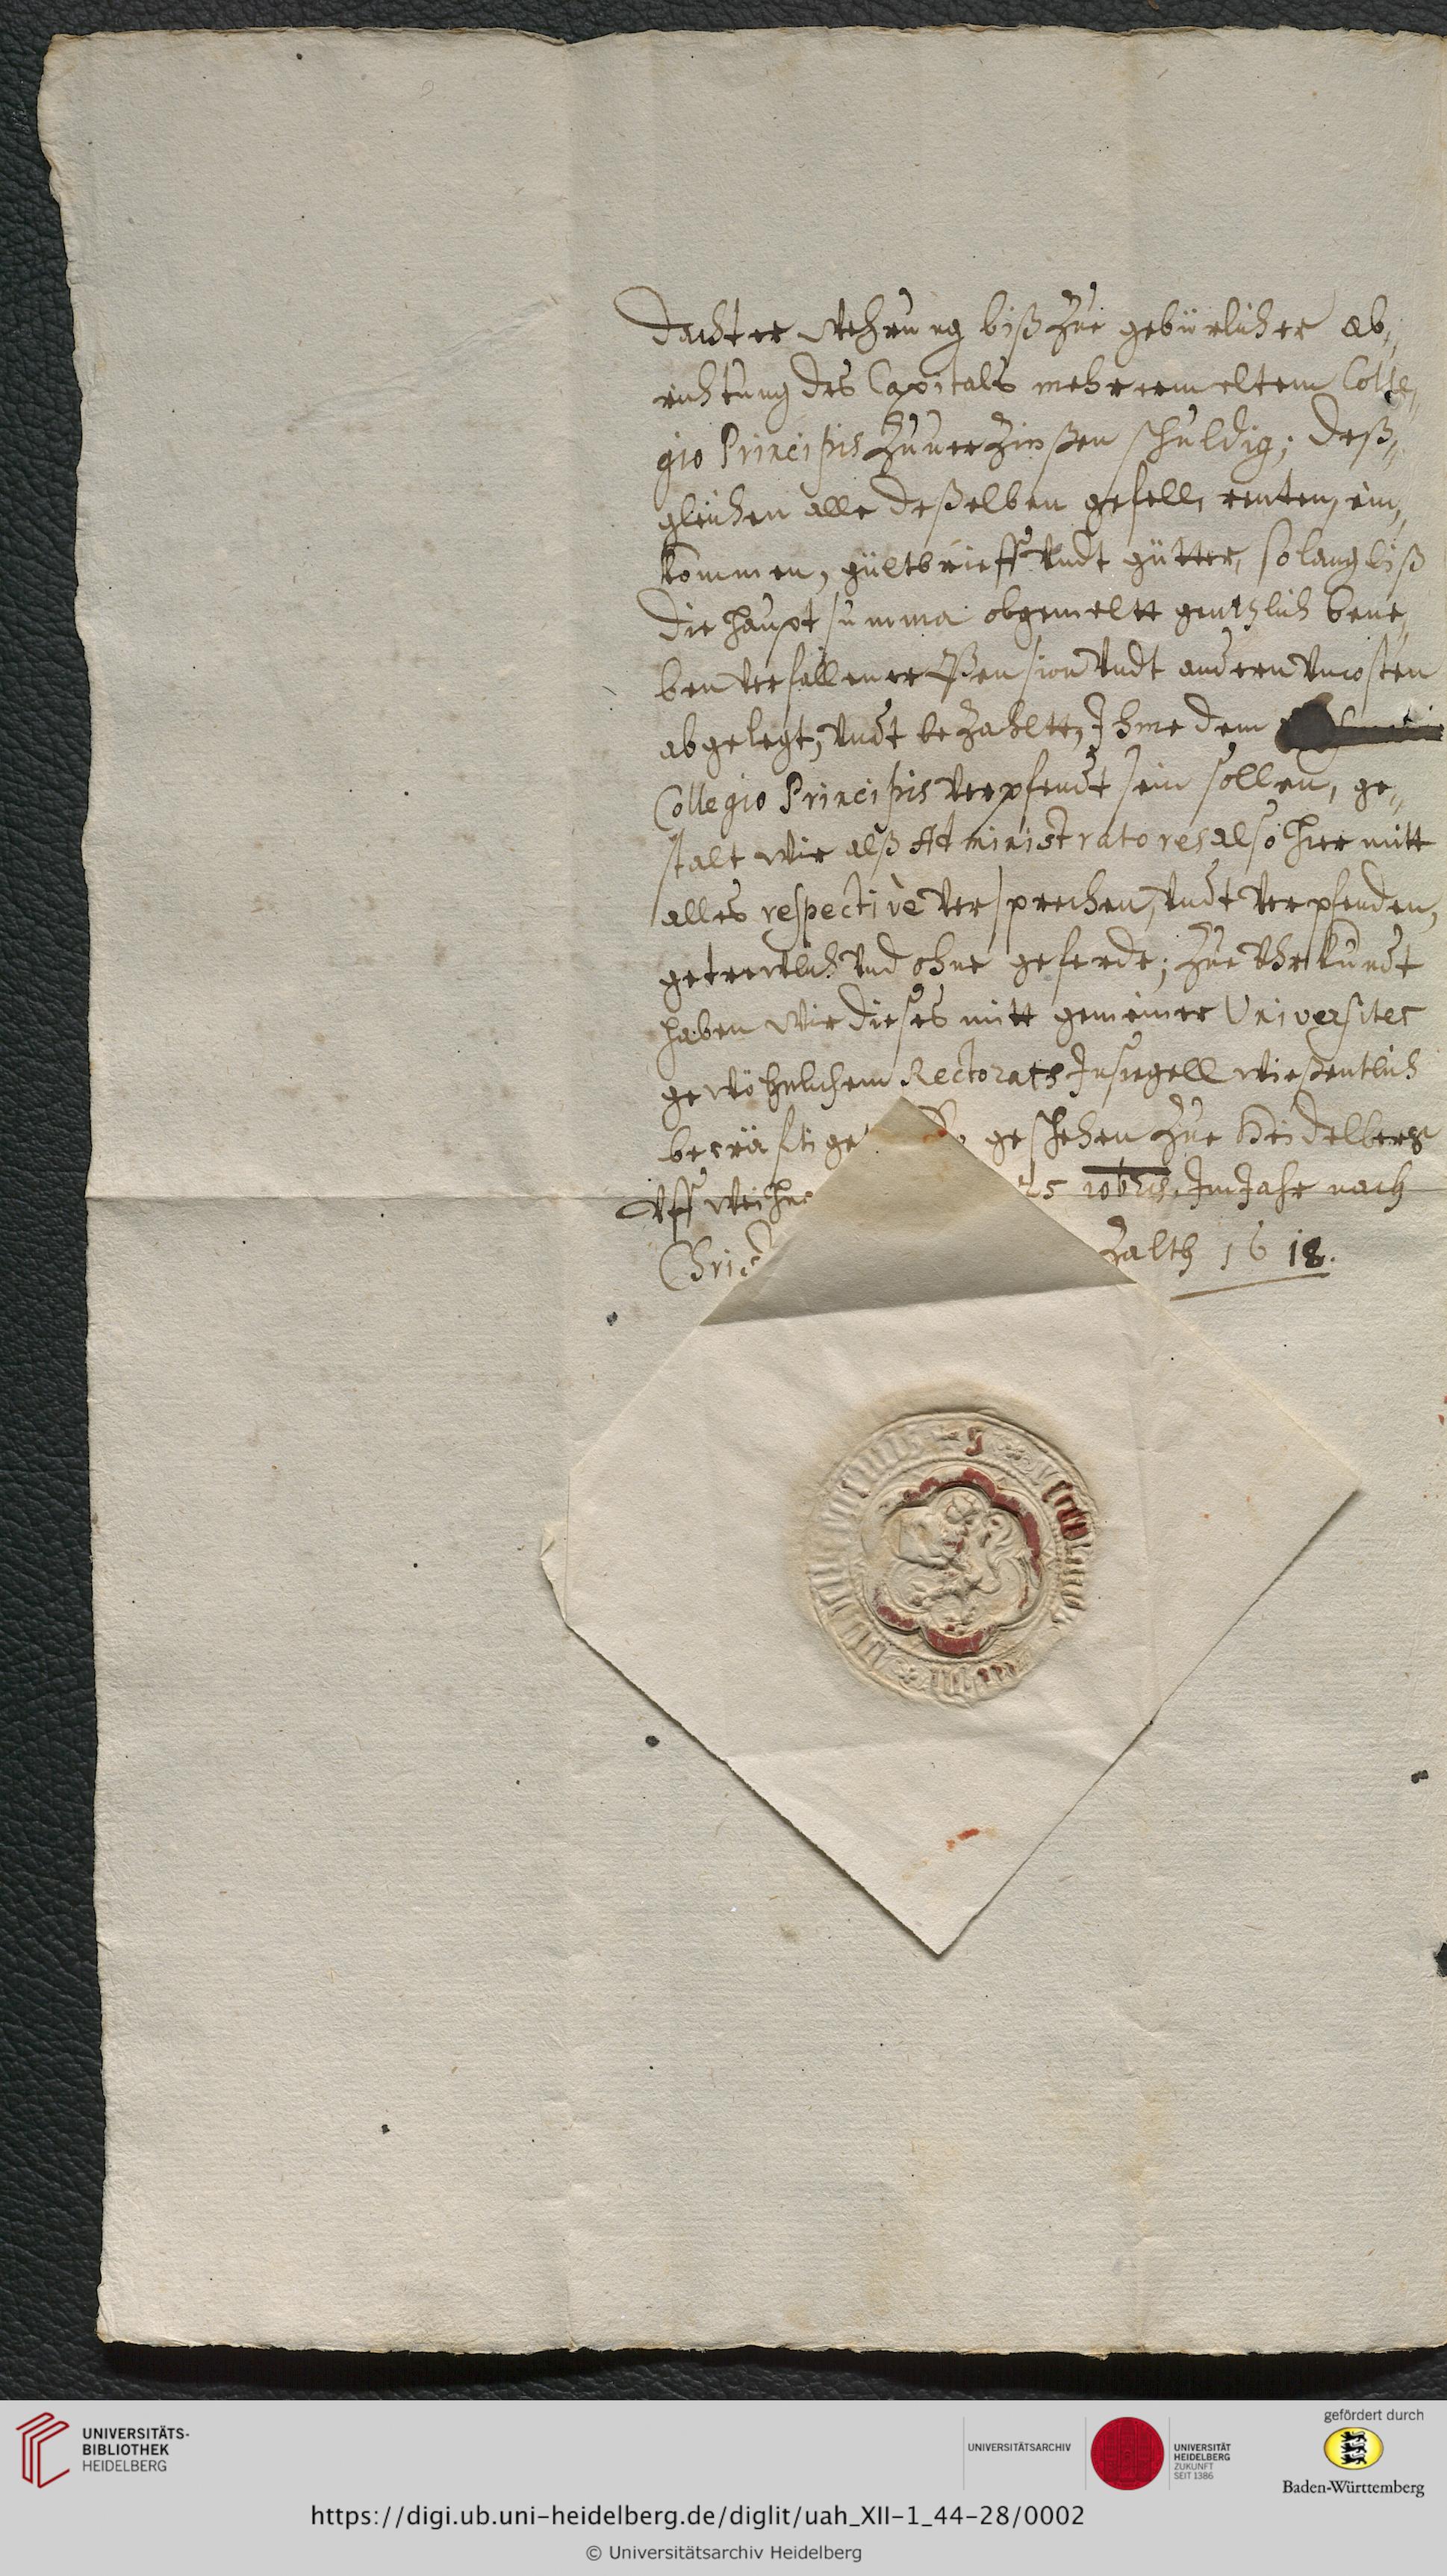 dachter wehrung biß zue gebürlicher ab,,
richtung des Capitals mehrermeltem Colle,,
gio Principis zuuerzinßen schuldig; deß,,
gleichen alle deßelben gefell, renten, ein,,
kommen, gültbrieff vndt gütter, so lang biß
die haupt summa obgemeltt gentzlich bene,,
ben verfallener Pension vndt andern vncosten
abgelegt, vndt bezahltt, Ihme dem
Collegio Principis verpfendt sein sollen, ge,,
stalt wir alß Administratores also hier mitt
alles respectivè versprechen, vndt verpfenden,
getrewlich vnd ohne geferde; zue vhrkundt
haben wir dieses mitt gemeiner Universitet
gewöhnlichem Rectorats Insiegell wießentlich
becräftige geschehen zue Heidelberg
vff weihna 25 10bris. Im Jahr nach
Chris zalth 1618.
UNIVERSITÄTS-
BIBLIOTHEK
HEIDELBERG
UNIVERSITÄTSARCHIV
UNIVERSITÄT
HEIDELBERG
ZUKUNFT
SEIT 1386
gefördert durch
Baden-Württemberg
https://digi.ub.uni-heidelberg.de/diglit/uah_XII-1_44-28/0002
© Universitätsarchiv Heidelberg